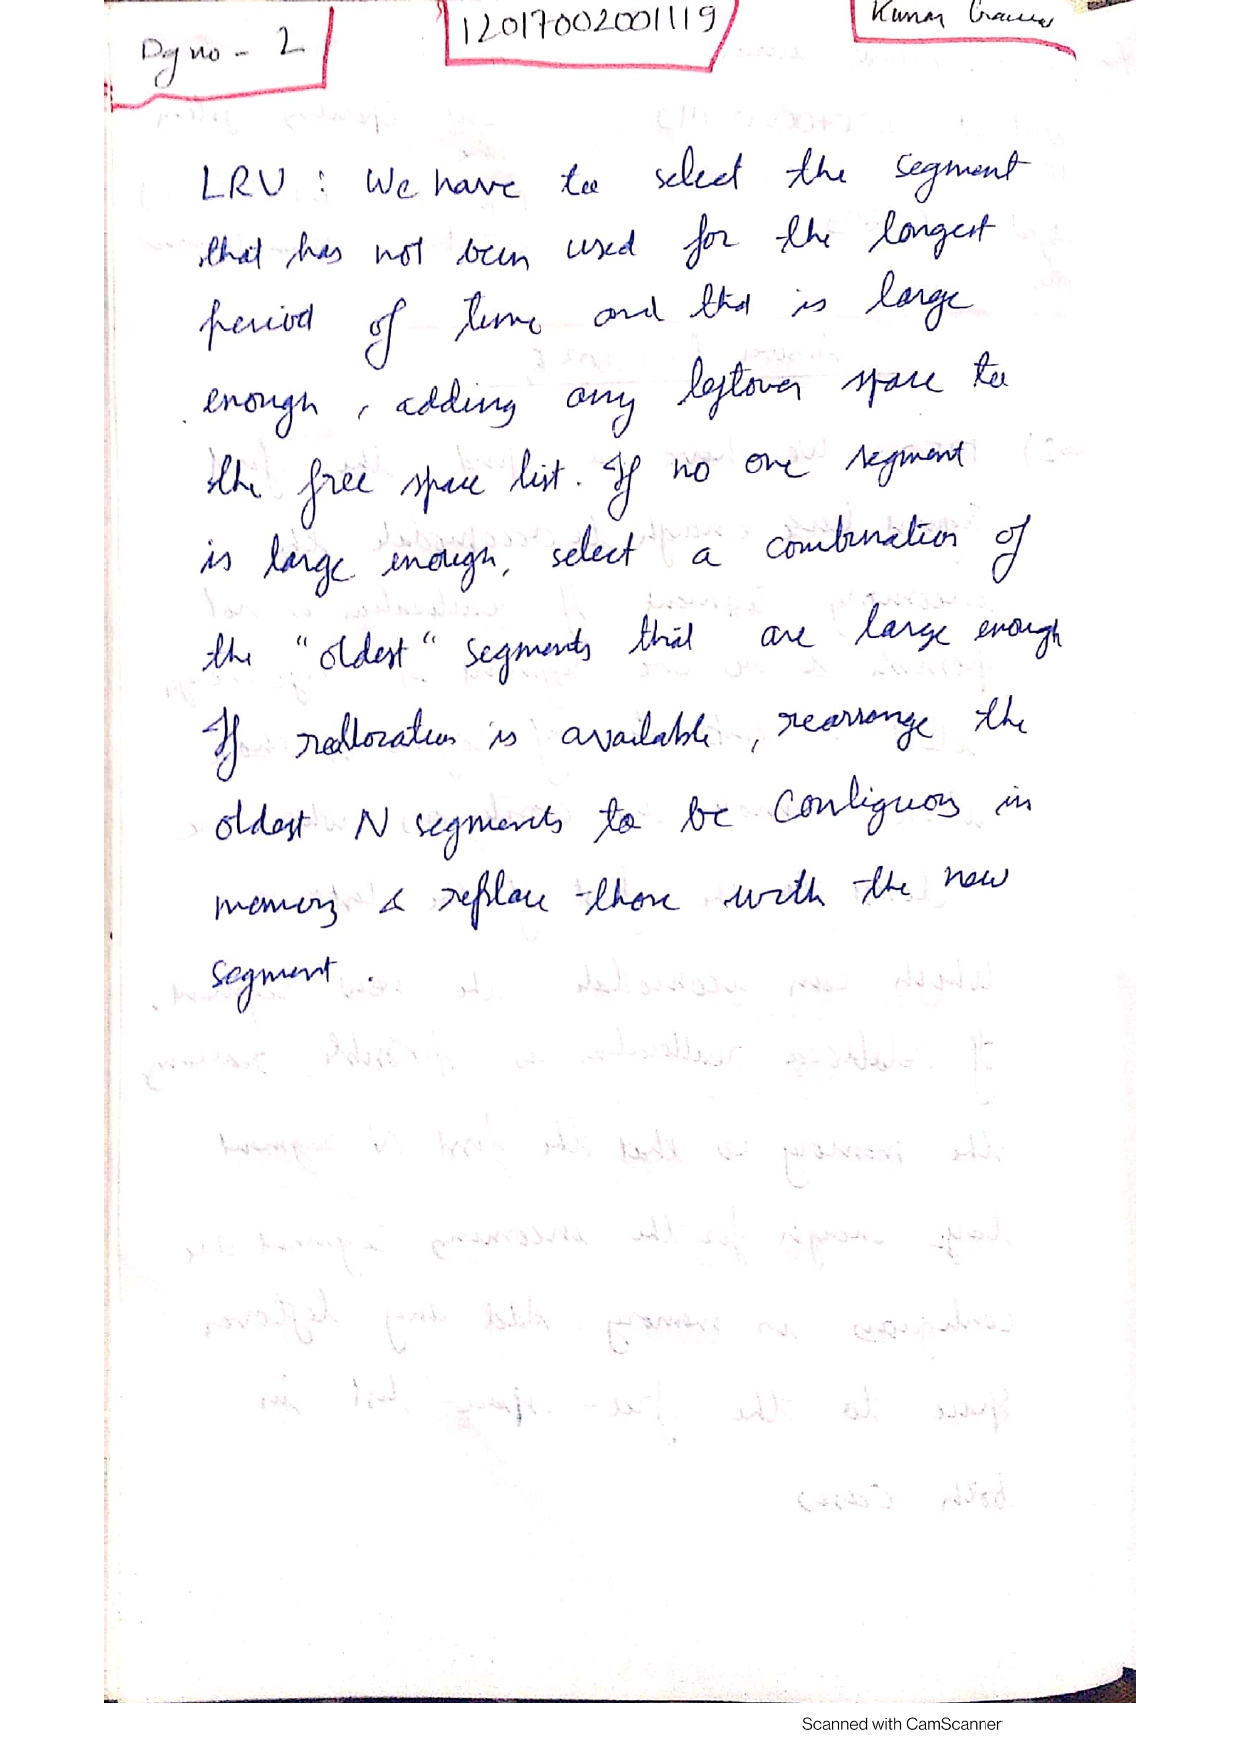 Pg no - 2
12017002001119
Kumar
LRU : We have to select the segment
that has not been used for the longest
period of time and that is large
enough, adding any leftover space to
the free space list. If no one segment
is large enough, select a combination of
the "oldest" segments that are large enough
If reallocation is available, rearrange the
oldest N segments to be Contiguous in
memory & replace those with the new
segment.
Scanned with CamScanner